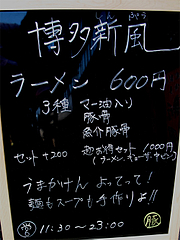 しん ぷう
博多新風
ラーメン 600円
3種 マー油入り
豚骨
魚介豚骨
セット +200 セット 1000円
(ラーメン、ギョーザ、
うまかけん よってって!
麺もスープも手作りよ!!
営 11:30～23:00 豚